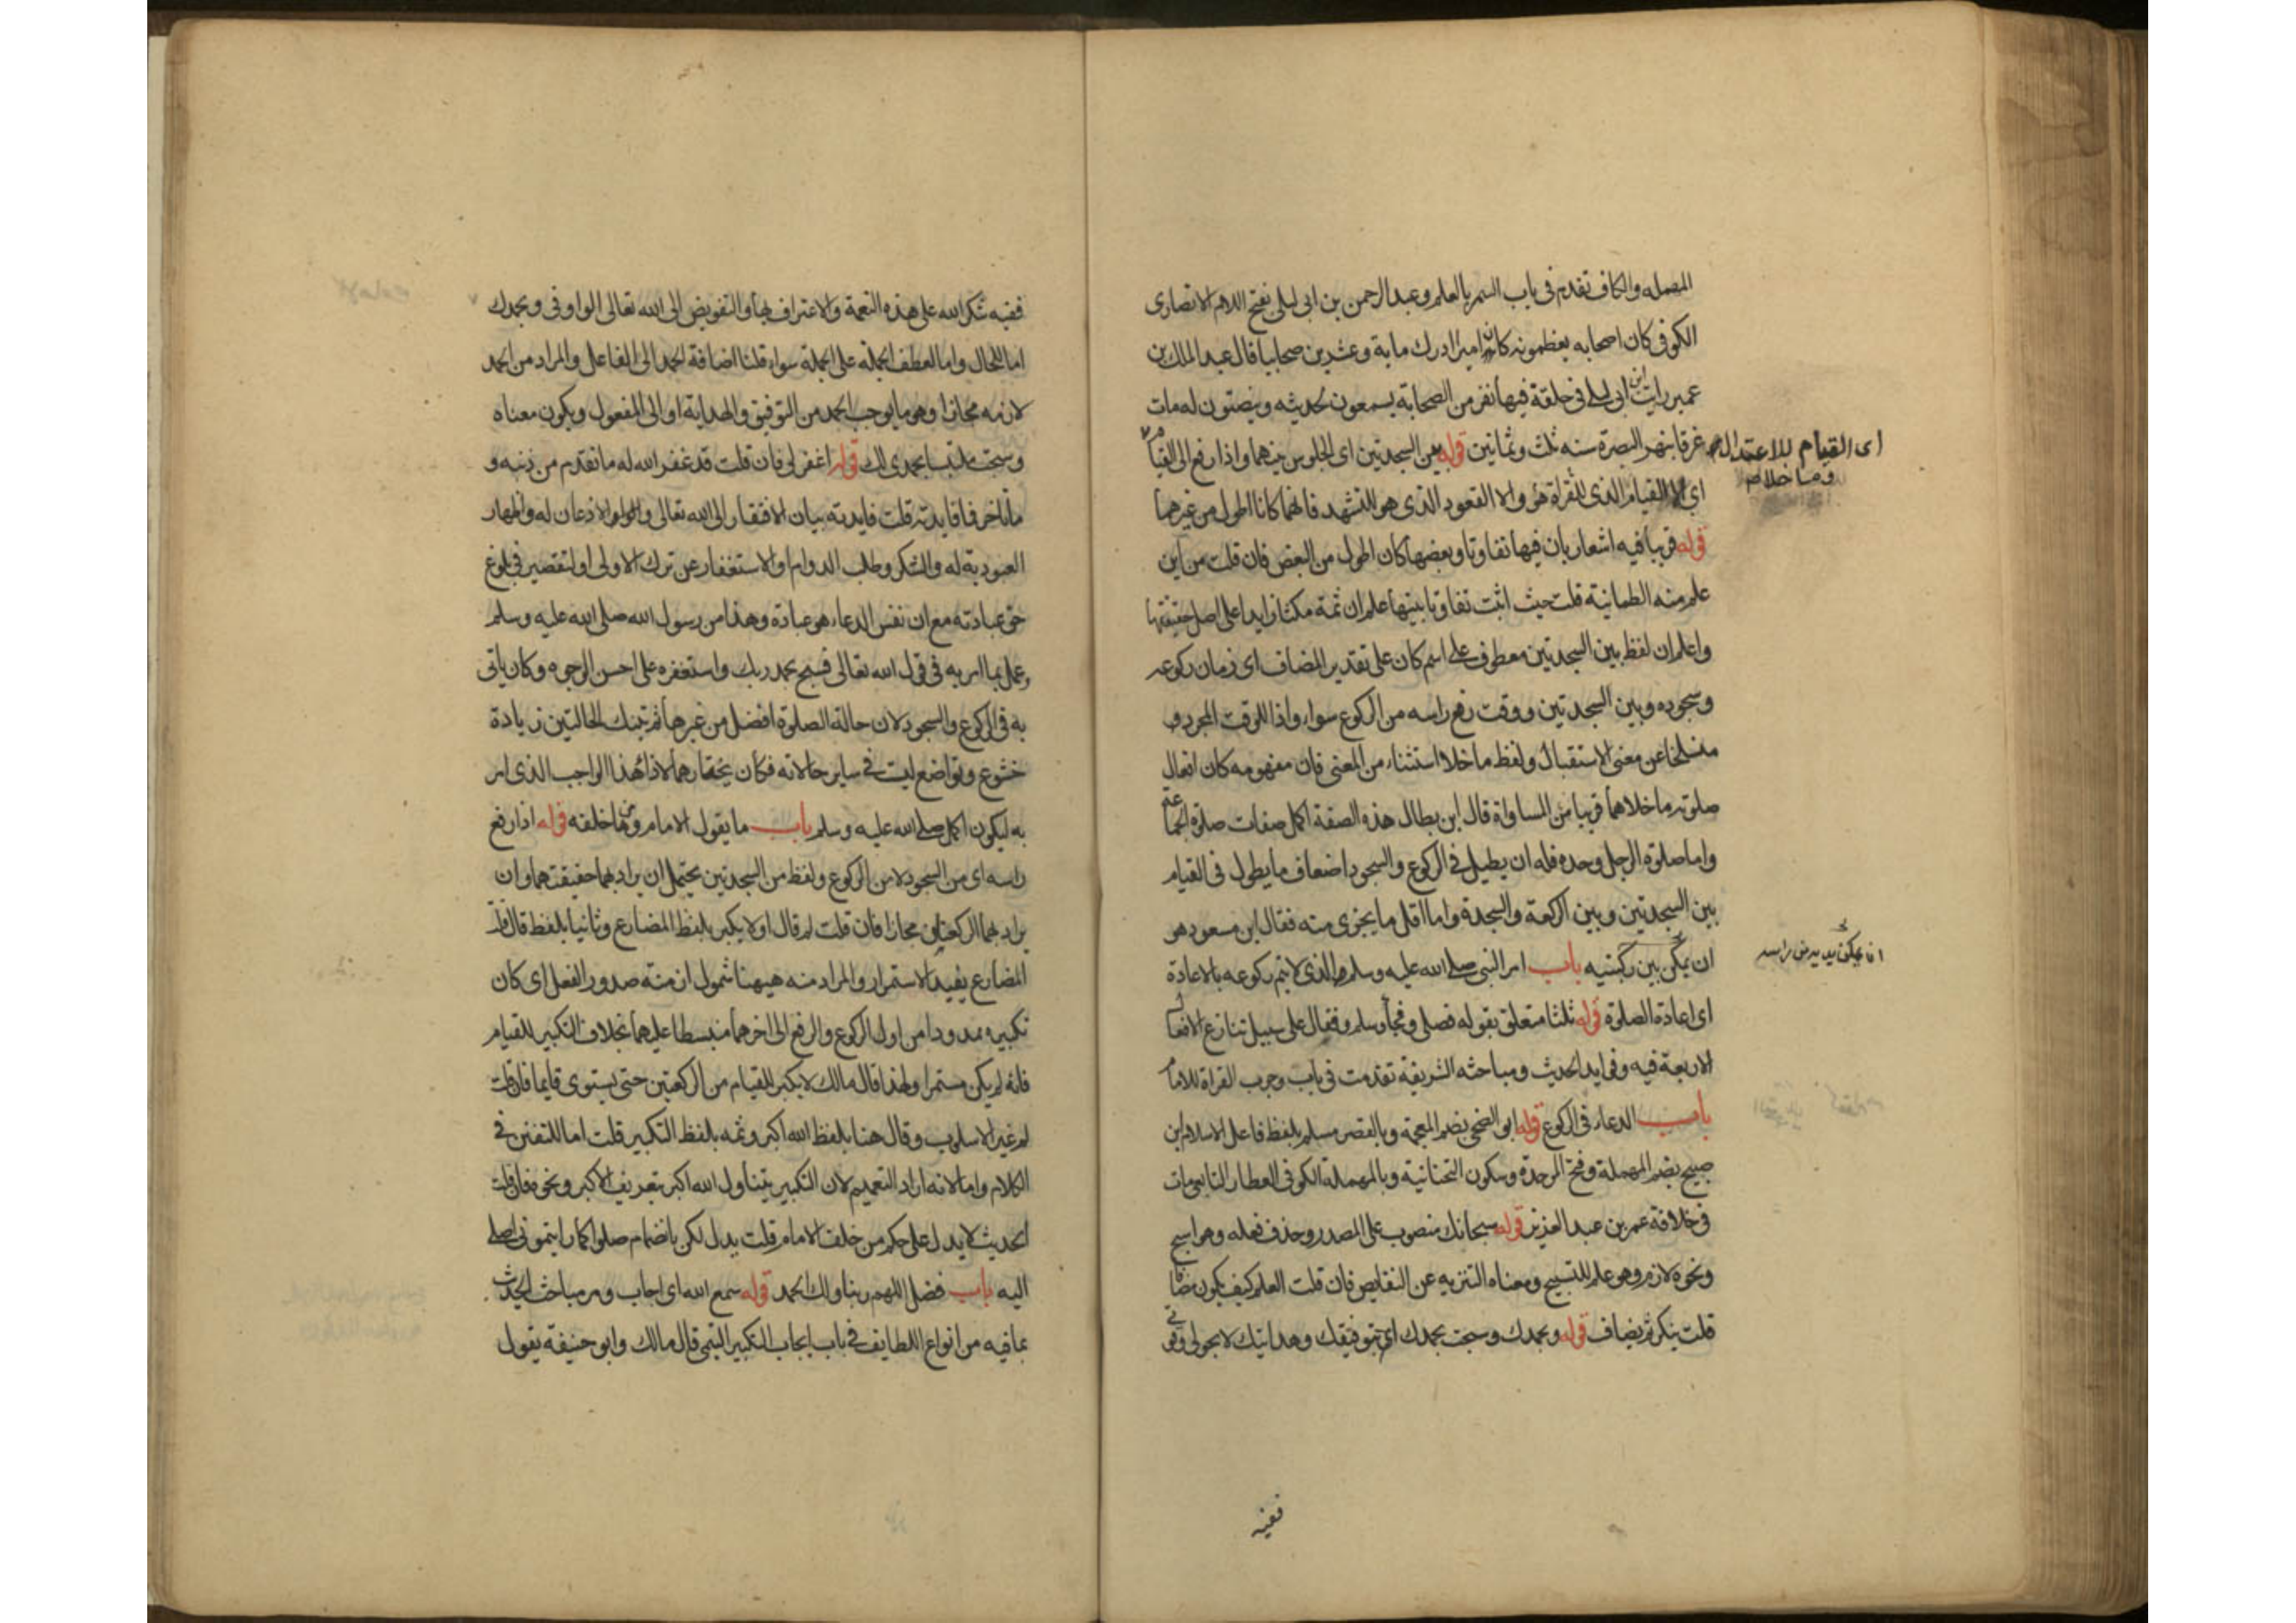 المهملة والكاف تقدم فى باب السمر بالعلم وعبد الرحمن بن ابى ليلى بفتح اللام الانصارى
الكوفى كان اصحابه يعظمونه كانه امير ادرك ماية وعشرين صحابيا قال عبد الملك بن
عمير رايت ابن ابى ليلى فى حلقة فيها نفر من الصحابة يسمعون لحديثه وينصتون له مات
غرقا بنهر البصرة سنه ثلث وثمانين قوله بين السجدتين اى الجلوس بينهما واذا رفع
اى القيام للاعتدال
وما خلا
اى الا القيام الذى للقراة هو والا القعود الذى هو للتشهد فانهما كانا اطول من غيرهما
قوله قريبا فيه اشعار بان فيها تفاوتا وبعضها كان اطول من البعض فان قلت من اين
علم منه الطمانينة قلت حيث اثبت تفاوتا بينها علم ان ثمة مكثا زايدا على اصل حقيقتها
واعلم ان لفظ بين السجدتين معطوف على اسم كان على تقدير المضاف اى زمان ركوعه
وسجوده وبين السجدتين ووقت رفع راسه من الركوع سواء واذا للوقت المجرد
منسلخا عن معنى الاستقبال ولفظ ما خلا استثناء من المعنى فان مفهومه كان افعال
صلوته ما خلاهما قريبا من المساواة قال ابن بطال هذه الصفة اكمل صفات صلوة الجماعة
واما صلوة الرجل وحده فله ان يطيل فى الركوع والسجود اضعاف ما يطول فى القيام
بين السجدتين وبين الركعة والسجدة واما اقل ما يجزى منه فقال ابن مسعود هو
ان يمكن بين ركبتيه باب امر النبى صلى الله عليه وسلم الذى لا يتم ركوعه بالاعادة
اى اعادة الصلوة قوله ثلثا متعلق بقوله فصلى وفجاء وسلم وفقال على سبيل تنازع الافعال
الاربعة فيه وفوايد الحديث ومباحثه الشريفة تقدمت فى باب وجوب القراة للامام
باب الدعاء فى الركوع قوله ابو الضحى بضم المعجمة وبالقصر مسلم بلفظ فاعل الاسلام ابن
صبيح بضم المهملة وفتح الموحدة وسكون التحتانية وبالمهملة الكوفى العطار التابعى مات
فى خلافة عمر بن عبد العزيز قوله سبحانك منصوب على المصدر وحذف فعله وهو اسبح
ونحوه لازم وهو علم للتسبيح ومعناه التنزيه عن النقايص فان قلت العلم كيف يكون مضافا
قلت ينكر ثم يضاف قوله وبحمدك وسبحت بحمدك اى بتوفيقك وهدايتك لا بحولى وقوتى
ففيه
ففيه شكر الله على هذه النعمة والاعتراف بها والتفويض الى الله تعالى الواو فى وبحمدك
اما للحال واما لعطف الجملة على الجملة سواء قلنا اضافة الحمد الى الفاعل والمراد من الحمد
لازمه مجازا وهو ما يوجب الحمد من التوفيق والهداية او الى المفعول ويكون معناه
وسبحت ملتبسا بحمدى لك قوله اغفر لى فان قلت قد غفر الله له ما تقدم من ذنبه و
ما تاخر فما فايدته قلت فايدته بيان الافتقار الى الله تعالى والاذعان له واظهار
العبودية له والشكر وطلب الدوام او الاستغفار عن ترك الاولى او التقصير فى بلوغ
حق عبادته مع ان نفس الدعاء هو عبادة وهذا من رسول الله صلى الله عليه وسلم
عمل بما امر به فى قول الله تعالى فسبح بحمد ربك واستغفره على احسن الوجوه وكان ياتى
به فى الركوع والسجود لان حالة الصلوة افضل من غيرها ثم تينك الحالتين زيادة
خشوع وتواضع ليست فى ساير حالاته فكان يختارهما لاداء هذا الواجب الذى امر
به ليكون اكمل صلى الله عليه وسلم باب ما يقول الامام ومن خلفه قوله اذا رفع
راسه اى من السجود لا من الركوع ولفظ من السجدتين يحتمل ان يراد بهما حقيقتهما وان
يراد بهما الركعتان مجازا فان قلت لم قال اولا يكبر بلفظ المضارع وثانيا بلفظ قال قلت
المضارع يفيد الاستمرار والمراد منه هيهنا شمول ازمنة صدور الفعل اى كان
تكبيره ممدودا من اول الركوع والرفع الى اخرهما منبسطا عليهما بخلاف التكبير للقيام
فانه لم يكن مستمرا ولهذا قال مالك لا يكبر للقيام من الركعتين حتى يستوى قايما فان قلت
لم غير الاسلوب وقال هنا بلفظ الله اكبر وثمه بلفظ التكبير قلت اما للتفنن فى
الكلام واما لانه اراد التعميم لان التكبير يتناول الله اكبر بتعريف الاكبر ونحوه فان قلت
الحديث لا يدل على حكم من خلف الامام قلت يدل لكن بانضمام صلوا كما رايتمونى اصلى
اليه باب فضل اللهم ربنا ولك الحمد قوله سمع الله اى اجاب ومر مباحث الحديث
بما فيه من انواع اللطايف فى باب ايجاب التكبير التيمى قال مالك وابو حنيفة يقول